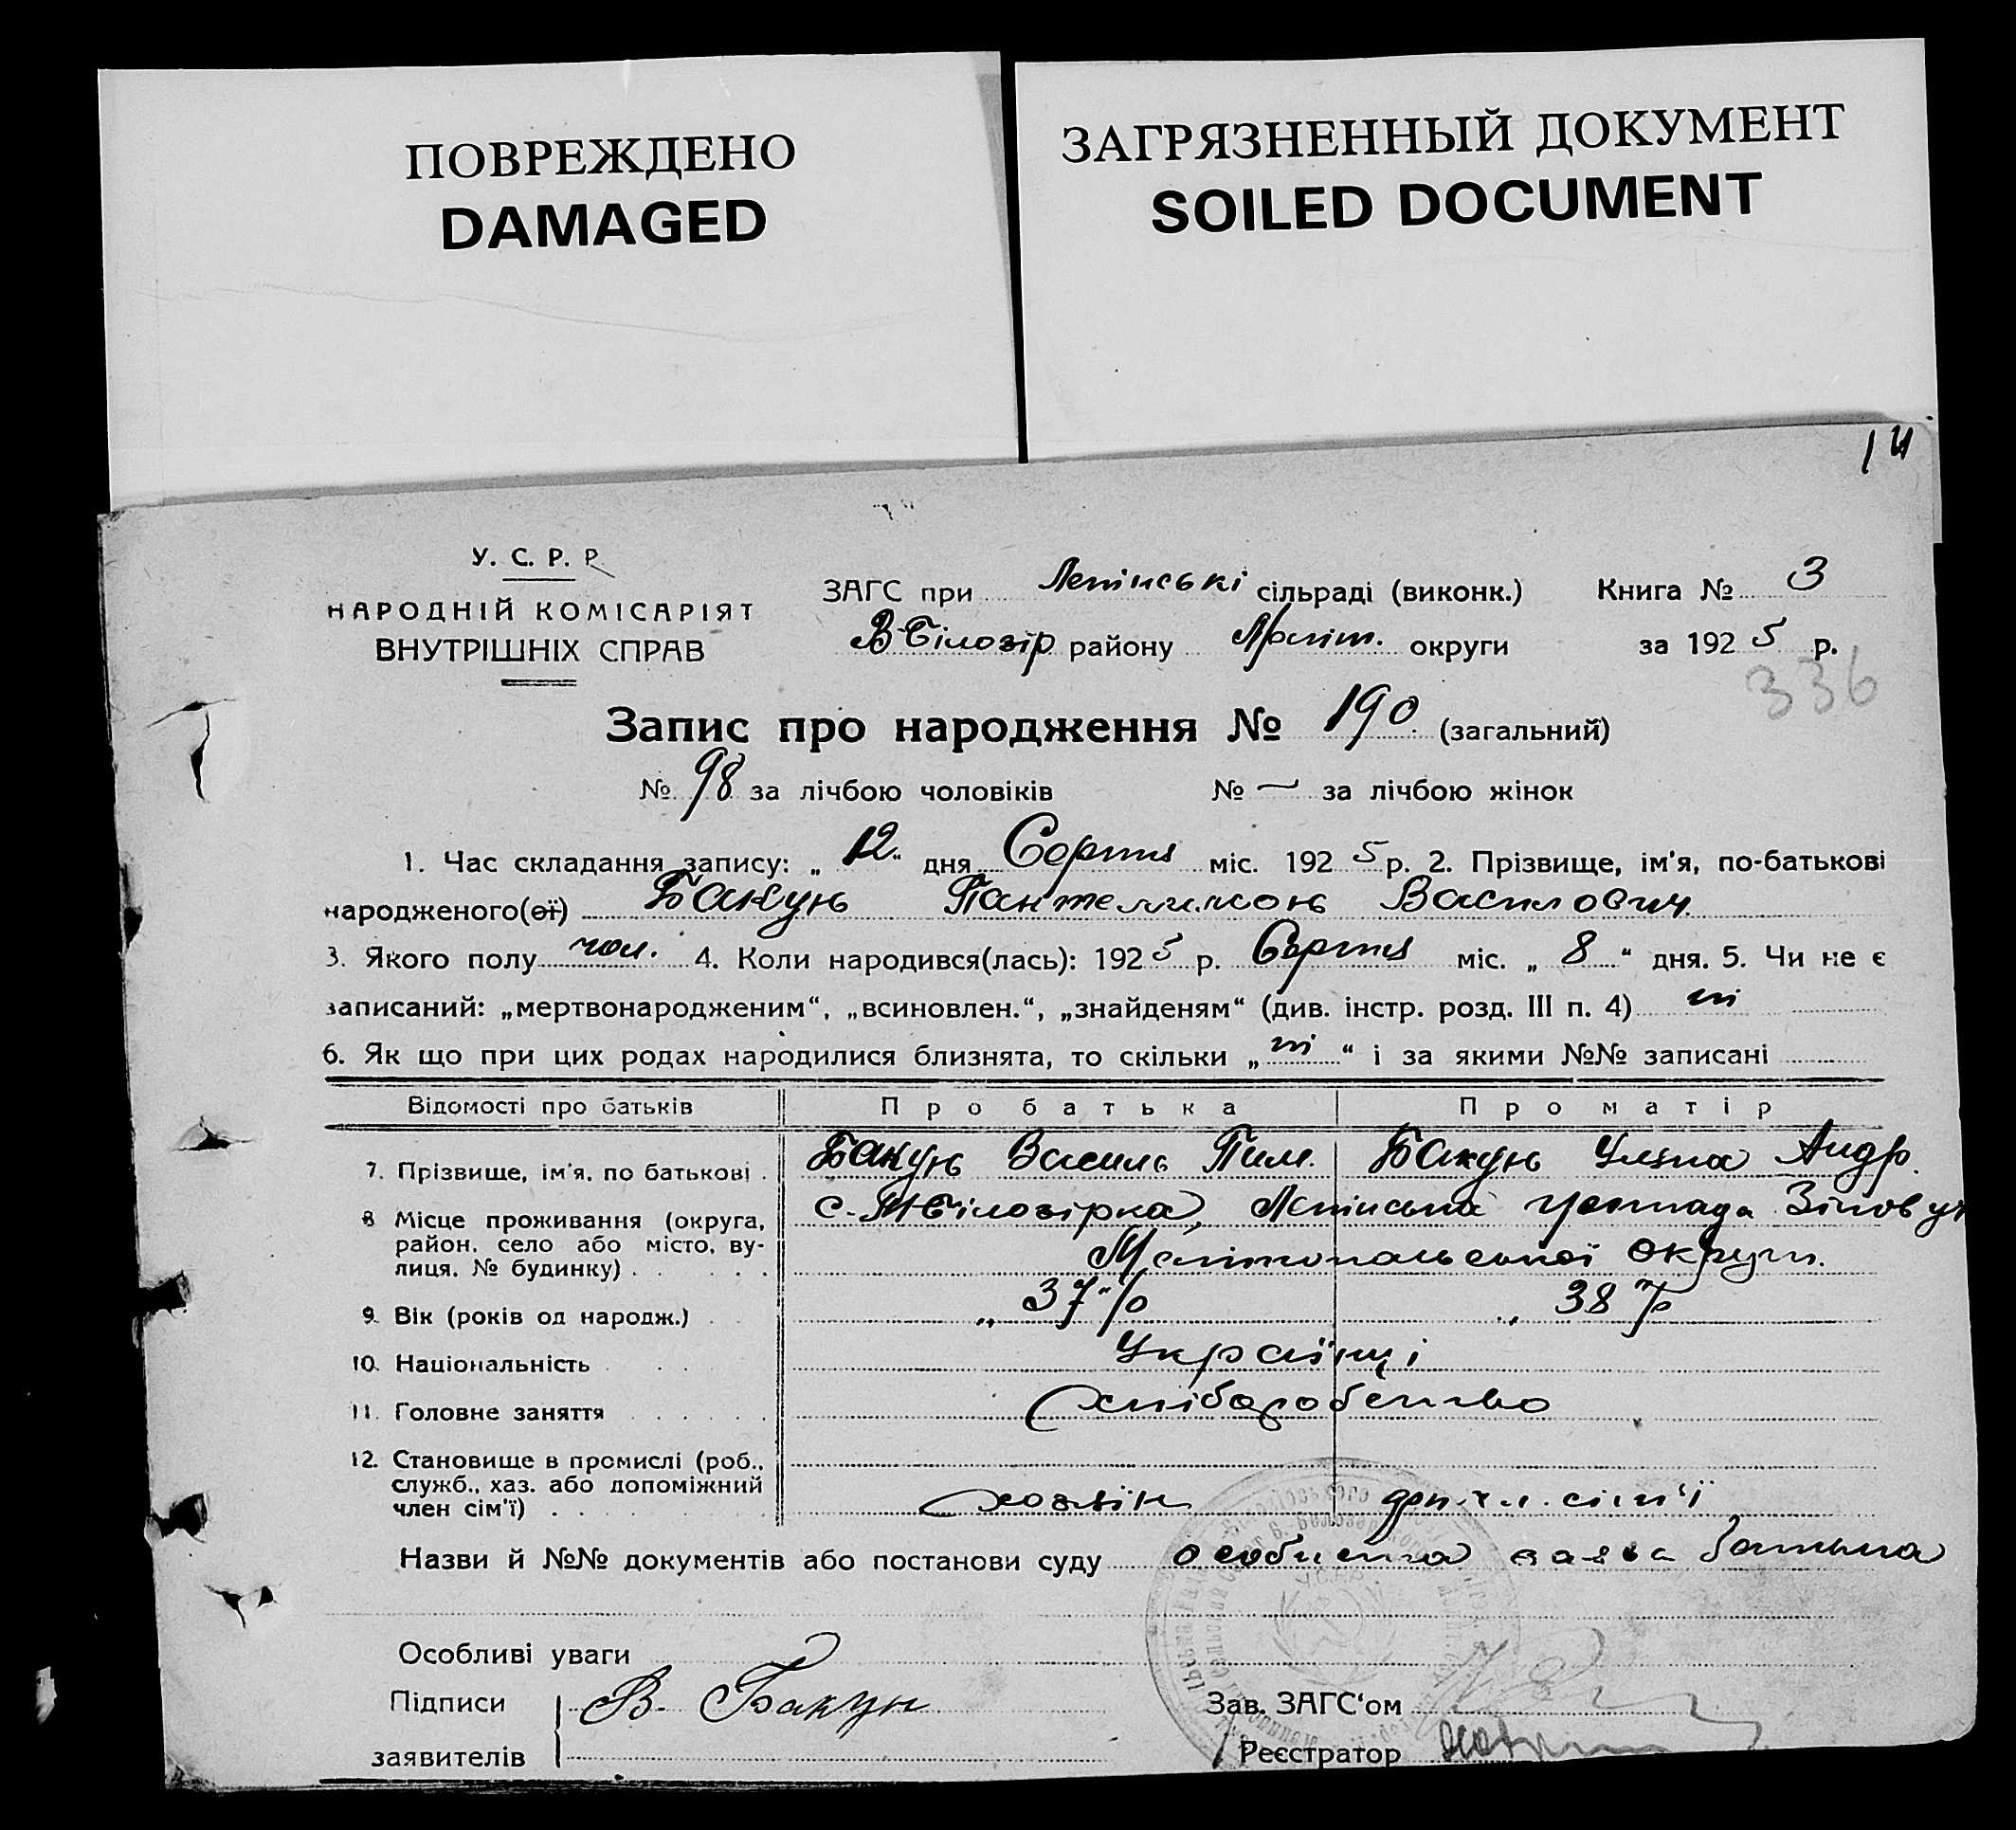 ПОВРЕЖДЕНО
DAMAGED
ЗАГРЯЗНЕННЫЙ ДОКУМЕНТ
SOILED DOCUMENT
У. С. Р. Р.
НАРОДНІЙ КОМІСАРІЯТ
ВНУТРІШНІХ СПРАВ
ЗАГС при Ленінські сільраді (виконк.) Книга № 3
В-Білозір району Меліт. округи за 1925 р.
336
Запис про народження № 190 (загальний)
№ 98 за лічбою чоловіків № — за лічбою жінок
1. Час складання запису: „12“ дня Серпня міс. 1925 р. 2. Прізвище, ім'я, по-батькові
народженого(ої) Бакунь Пантелимонь Василович
3. Якого полу чол. 4. Коли народився(лась): 1925 р. Серпня міс. „8“ дня. 5. Чи не є
записаний: „мертвонародженим“, „всиновлен.“, „знайденям“ (див. інстр. розд. III п. 4) ні
6. Як що при цих родах народилися близнята, то скільки „ні“ і за якими №№ записані
Відомості про батьків Про батька Про матір
7. Прізвище, ім'я, по батькові Бакунь Василь Пил. Бакунь Уляна Андр.
8 Місце проживання (округа, район, село або місто, вулиця, № будинку) Білозірка, Ленінська громада
Мелітопольської округи.
9. Вік (років од народж.) 37 38
10. Національність Українці
11. Головне заняття хліборобство
12. Становище в промислі (роб., служб., хаз. або допоміжний член сім'ї) хозяїн доп. чл. сім'ї
Назви й №№ документів або постанови суду особиста заява батька
Особливі уваги
Підписи В. Бакун Зав. ЗАГС'ом
заявителів Реєстратор